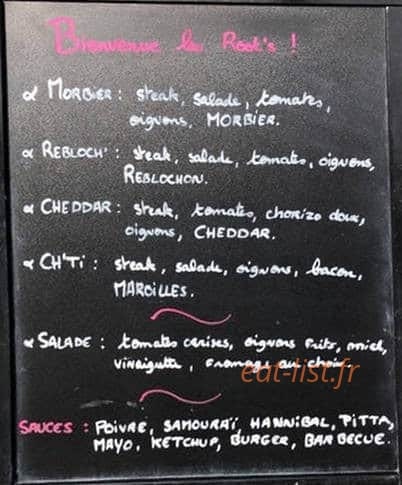 Bienvenue les Root's !
∝ MORBIER : steak, salade, tomates,
oignons, MORBIER.
∝ REBLOCH' : steak, salade, tomates, oignons,
REBLOCHON.
∝ CHEDDAR : steak, tomates, chorizo doux,
oignons, CHEDDAR.
∝ CH'Ti : steak, salade, oignons, bacon,
MAROILLES.
∝ SALADE : tomates cerises, oignons frits, miel,
vinaigrette, fromage au choix
eat-list.fr
SAUCES : POIVRE, SAMOURAÏ, HANNIBAL, PITTA,
MAYO, KETCHUP, BURGER, BARBECUE.